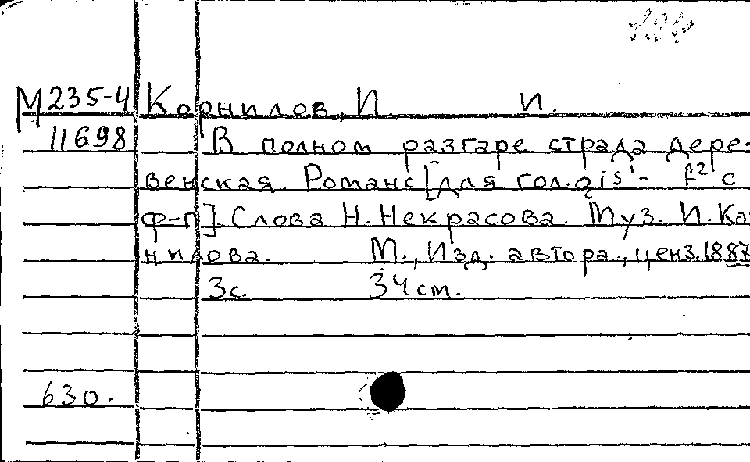 М 235-4 Корнилов, И. И.
11698 В полном разгаре страда дере-
венская. Романс [для гол. gis¹ - f² с
ф-п]. Слова Н. Некрасова. Муз. И. Кор
нилова. М., Изд. автора, ценз. 1887
3с. 34 см.
630.